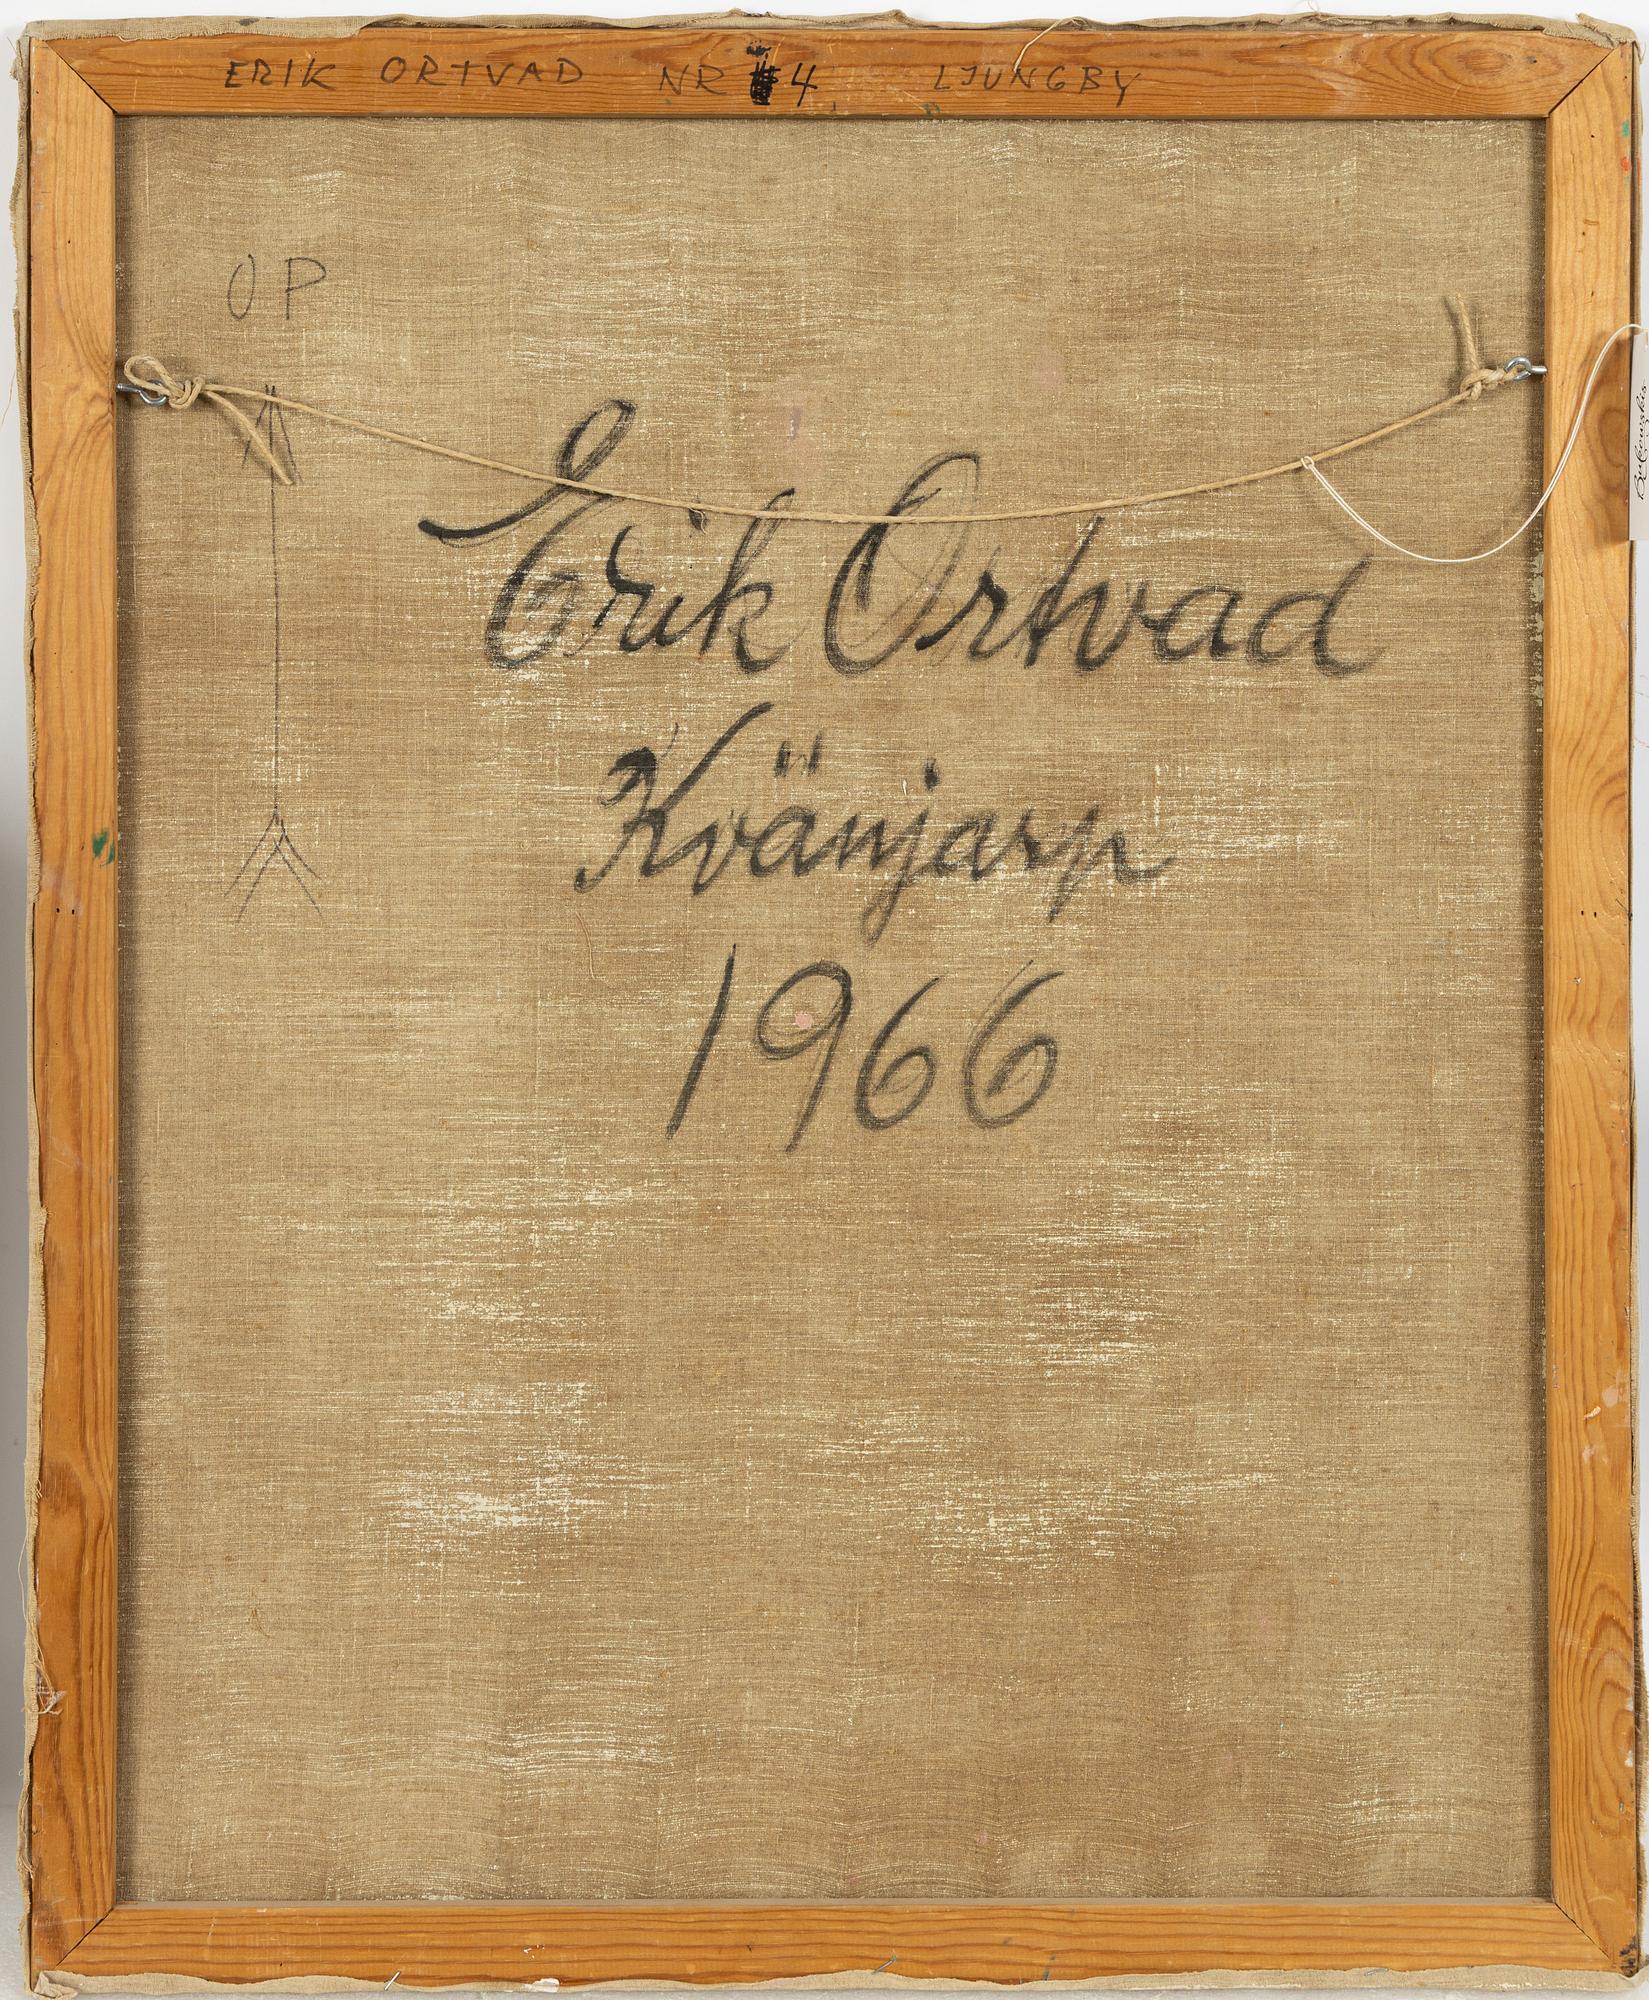 ERIK ORTVAD NR 4 LJUNGBY
OP
Erik Ortvad
Kvänjarp
1966
Bukowskis